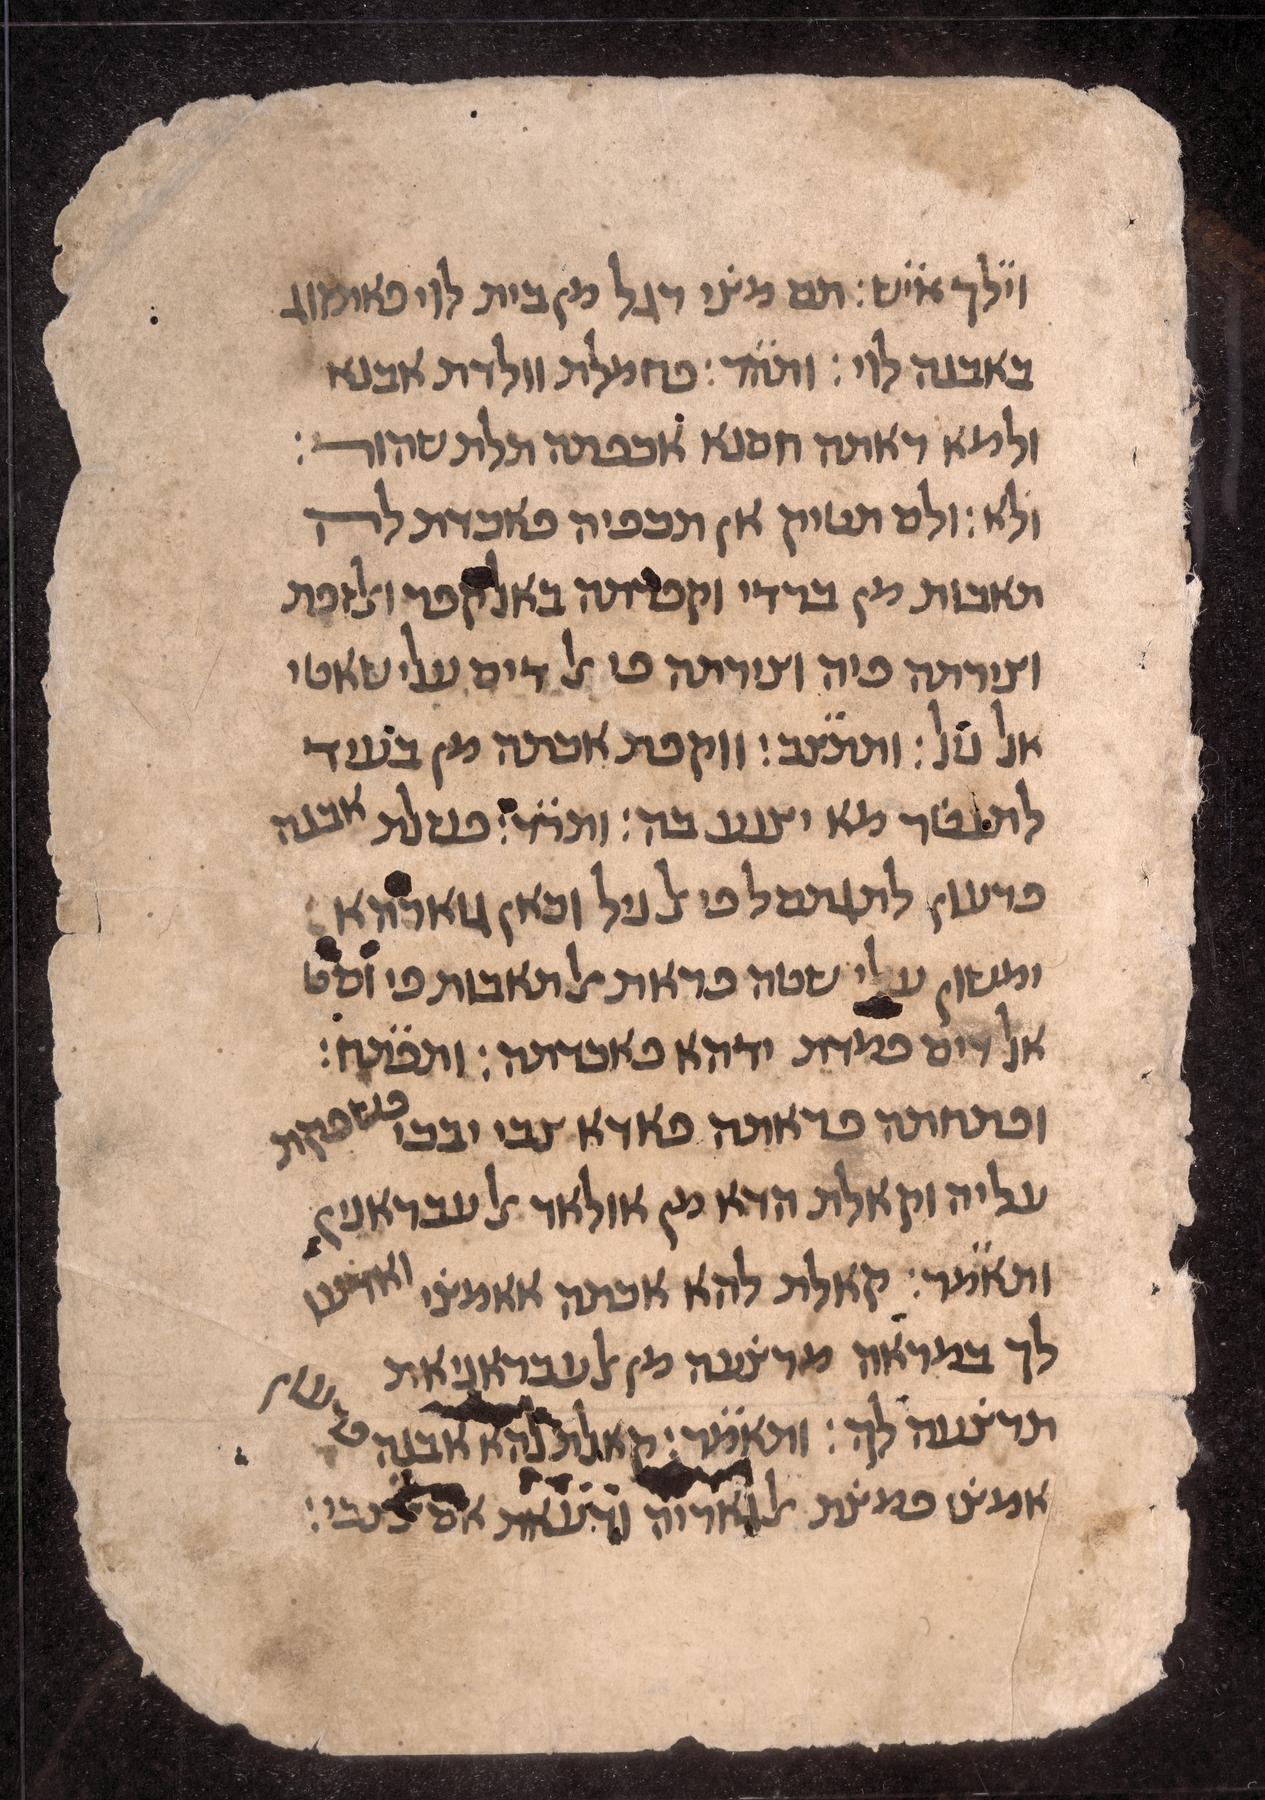 וילך איש : תם מצׄי רגל מן בית לוי פאזמוג
באבנה לוי : ותהר : פחמלת וולדת אבנא
ולמא ראתה חסנא אכׄפתה תלת שהור :
ולא : ולם תטיק אן תכפיה פאכדת לה
תאבות מן ברדי וקפרתה באלקפר ואלזפת
וצירתה פיה וצירתה פי אל דיס עלי שאטי
אל ניל : ותתצב : ווקפת אכתה מן בעיד
לתנטׄר מא יצנע בה : ותרד : פנזלת אבנה
פרעון לתגתסל פי אל ניל וכאן גוארהא
ימשון עלי שטה פראת אלתאבות פי וסט
אל דיס פמדת ידהא פאכדתה : ותפתח :
ופתחתה פראתה פאדא צבי יבכי פשפקת
עליה וקאלת הדא מן אולאד אלעבראנין
ותאמר : קאלת להא אכתה אאמצׄי
לך במראה מרצׄעה מן אלעבראניאת
תרצׄעה לך : ותאמר : קאלת להא אבנה
אמצׄי פמצׄת אלגאריה ודעאת אם אלצבי :